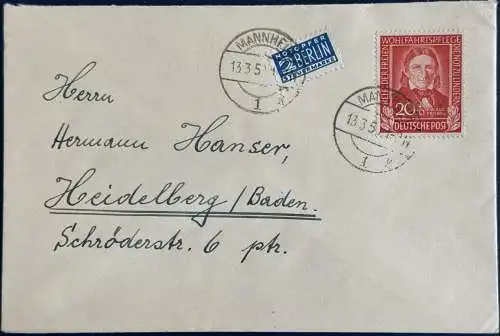 MANNHEI
13.3.5
1
NOTOPFER
2 BERLIN
STEUERMARKE
HELFER DER MENSCHHEIT
WOHLFAHRTSPFLEGE
20
DEUTSCHE POST
MAN
13.3.5
1
Herrn
Hermann Hanser,
Heidelberg/Baden.
Schröderstr. 6 ptr.